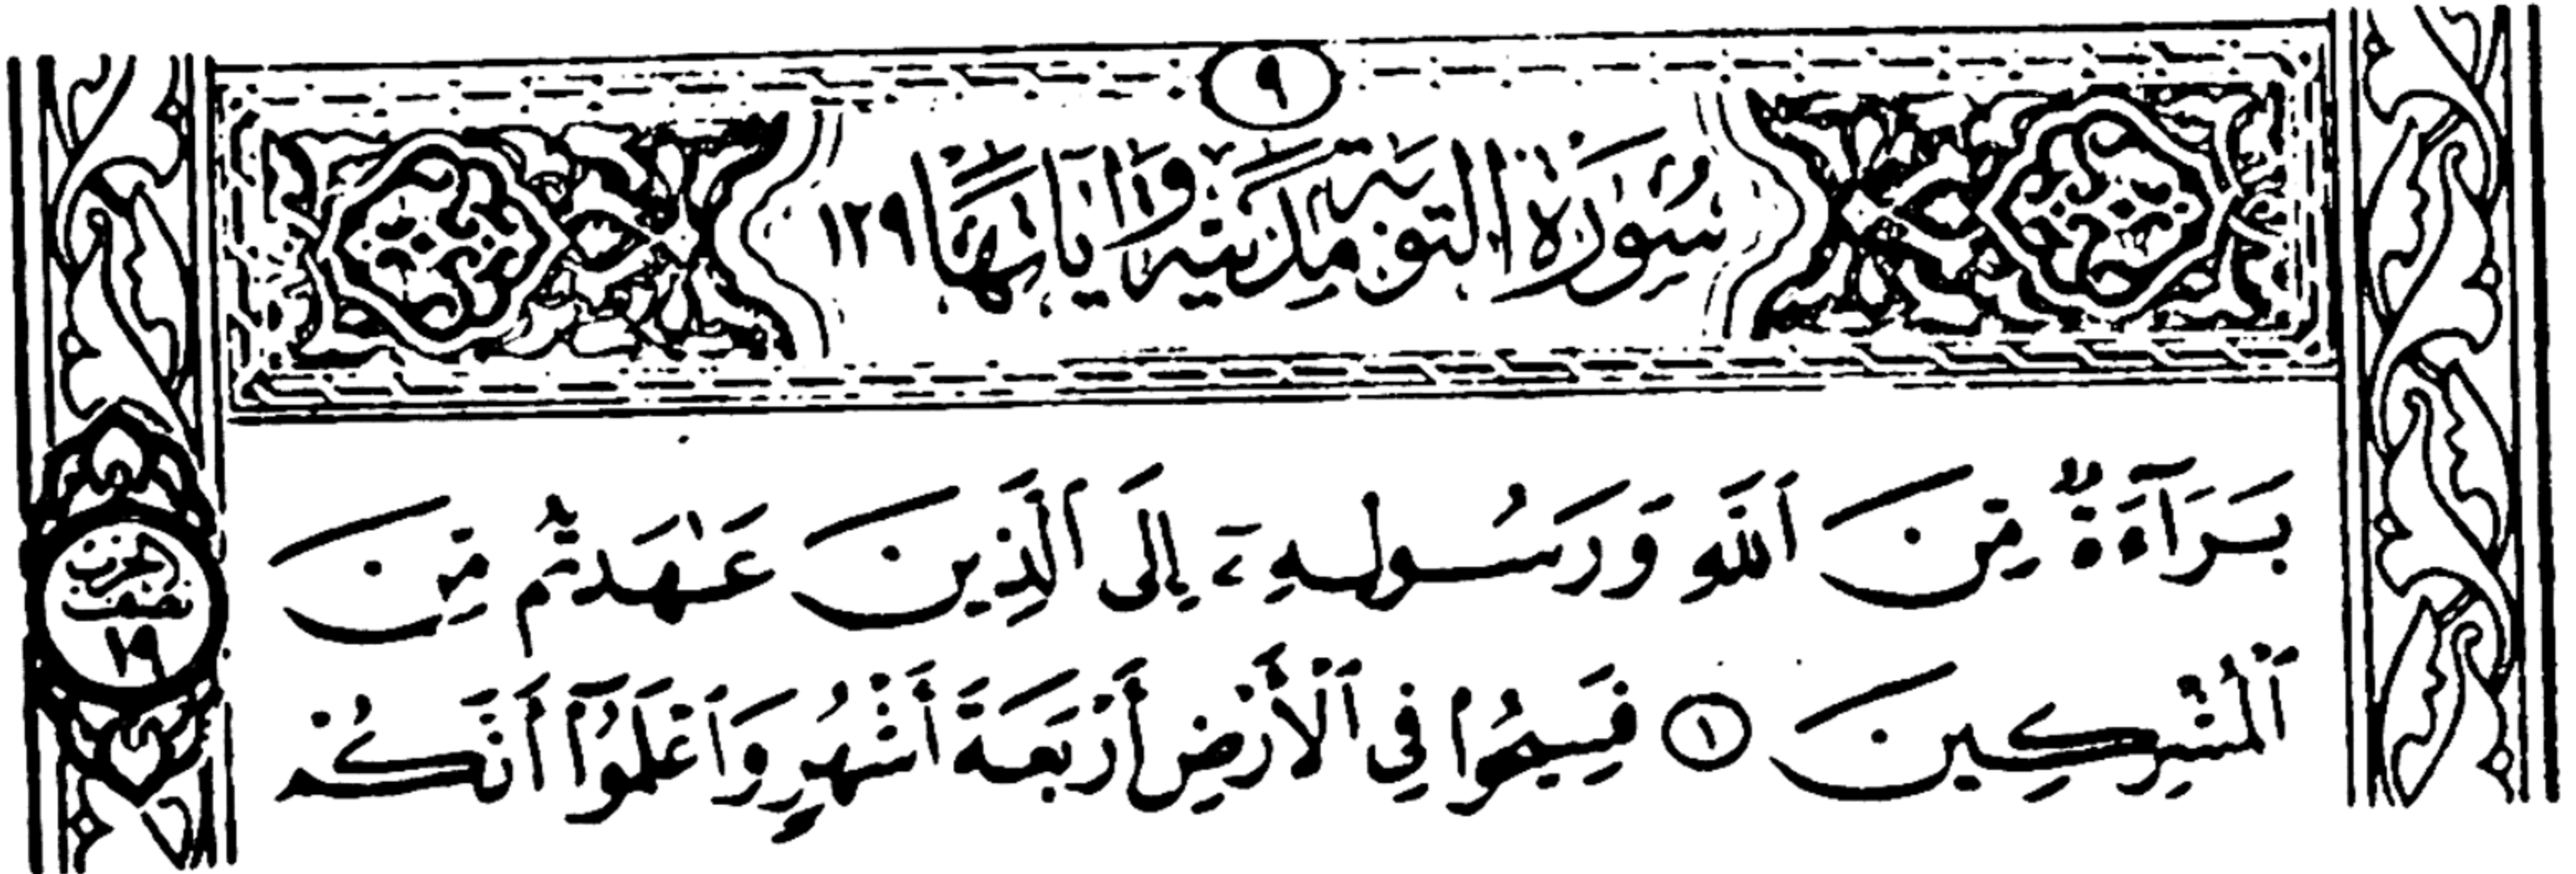 ٩
سُورَةُ التَّوبَةِ مَدَنِيَّةٌ وَآيَاتُهَا ١٢٩
بَرَآءَةٌ مِّنَ ٱللَّهِ وَرَسُولِهِۦٓ إِلَى ٱلَّذِينَ عَٰهَدتُّم مِّنَ
ٱلْمُشْرِكِينَ ١ فَسِيحُوا۟ فِى ٱلْأَرْضِ أَرْبَعَةَ أَشْهُرٍ وَٱعْلَمُوٓا۟ أَنَّكُمْ
نصف
حزب
١٩